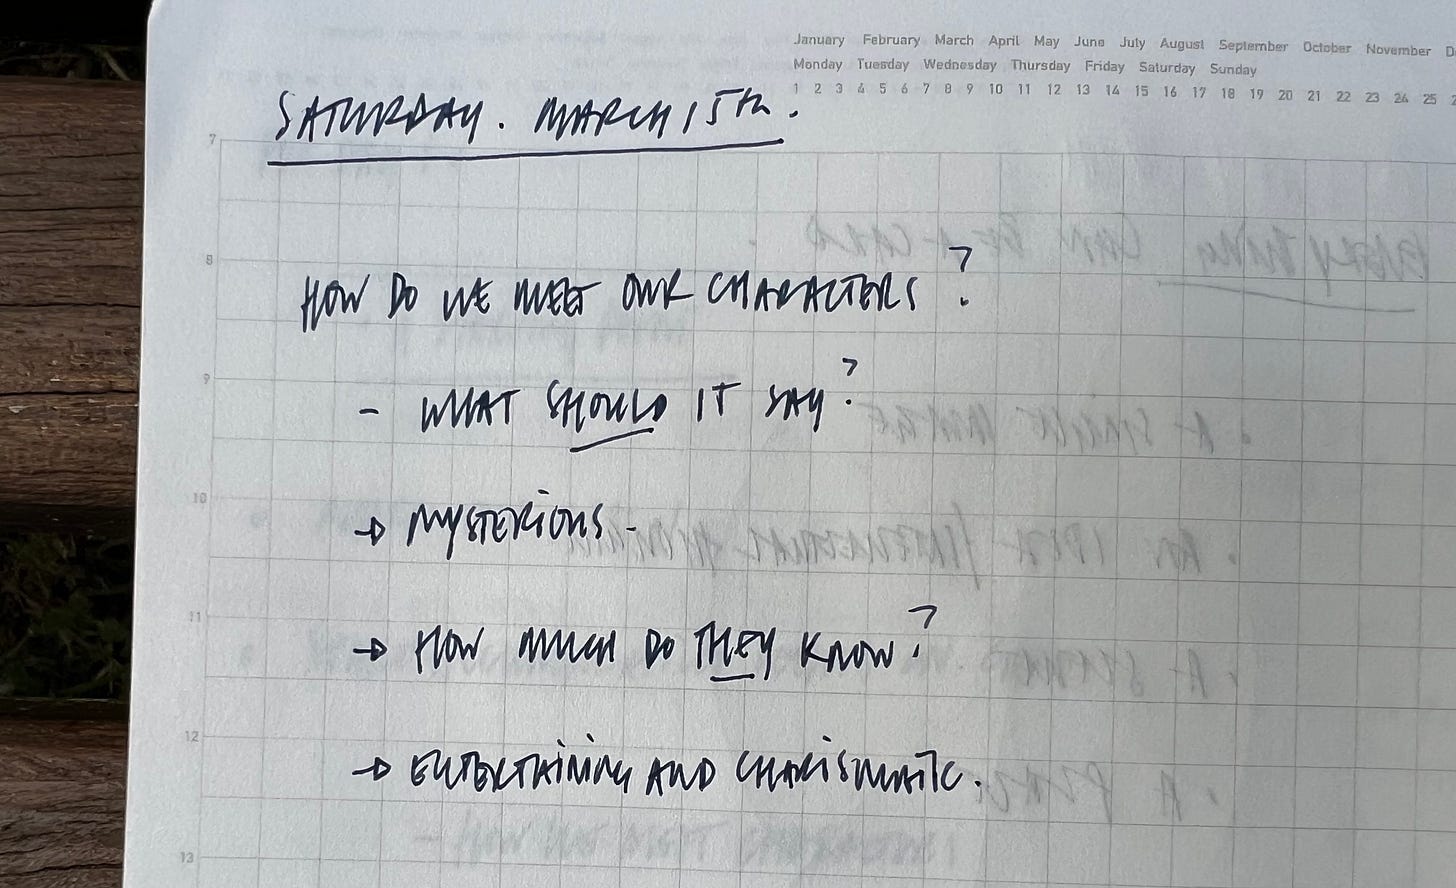 January February March April May June July August September October November D
Monday Tuesday Wednesday Thursday Friday Saturday Sunday
1 2 3 4 5 6 7 8 9 10 11 12 13 14 15 16 17 18 19 20 21 22 23 24 25
SATURDAY. MARCH 15th.
7
8
HOW DO WE MEET OUR CHARACTERS?
9
- WHAT SHOULD IT SAY?
10
→ MYSTERIOUS -
11
→ HOW MUCH DO THEY KNOW?
12
→ ENTERTAINING AND CHARISMATIC.
13